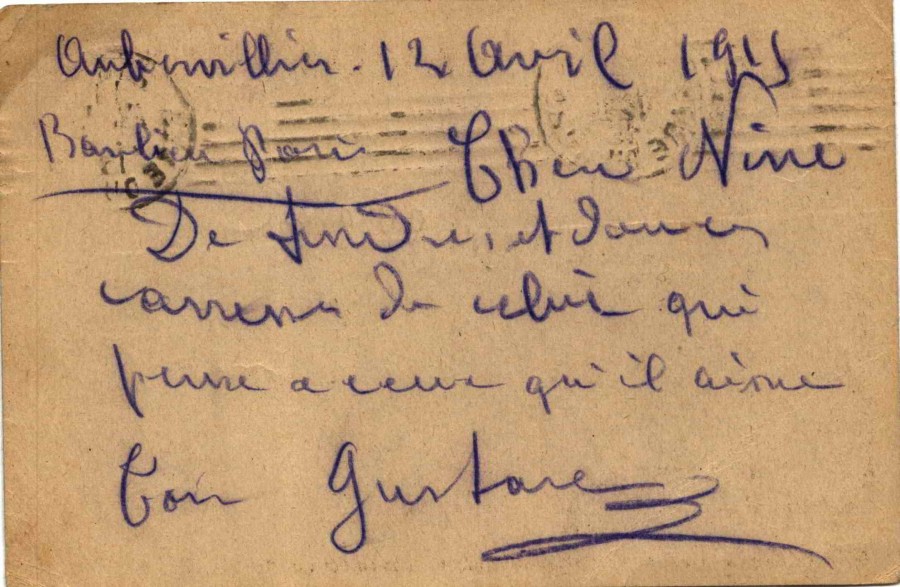 Aubervillier. 12 Avril 1915
Banlieu Paris Cher Nine
De tendres, et douces
caresses de celui qui
pense a ceux qu'il aime
Ton Gustave